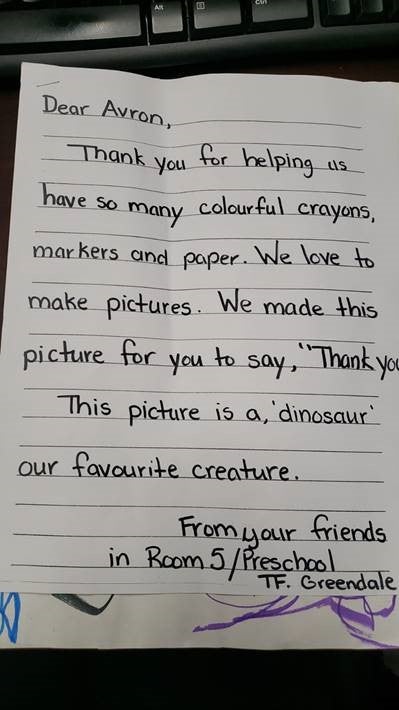 Alt
Ctrl
Dear Avron,
Thank you for helping us
have so many colourful crayons,
markers and paper. We love to
make pictures. We made this
picture for you to say, "Thank you
This picture is a, 'dinosaur'
our favourite creature.
From your friends
in Room 5/Preschool
TF. Greendale